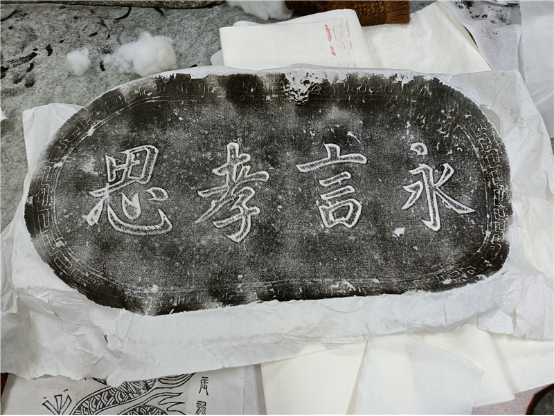 永言孝思